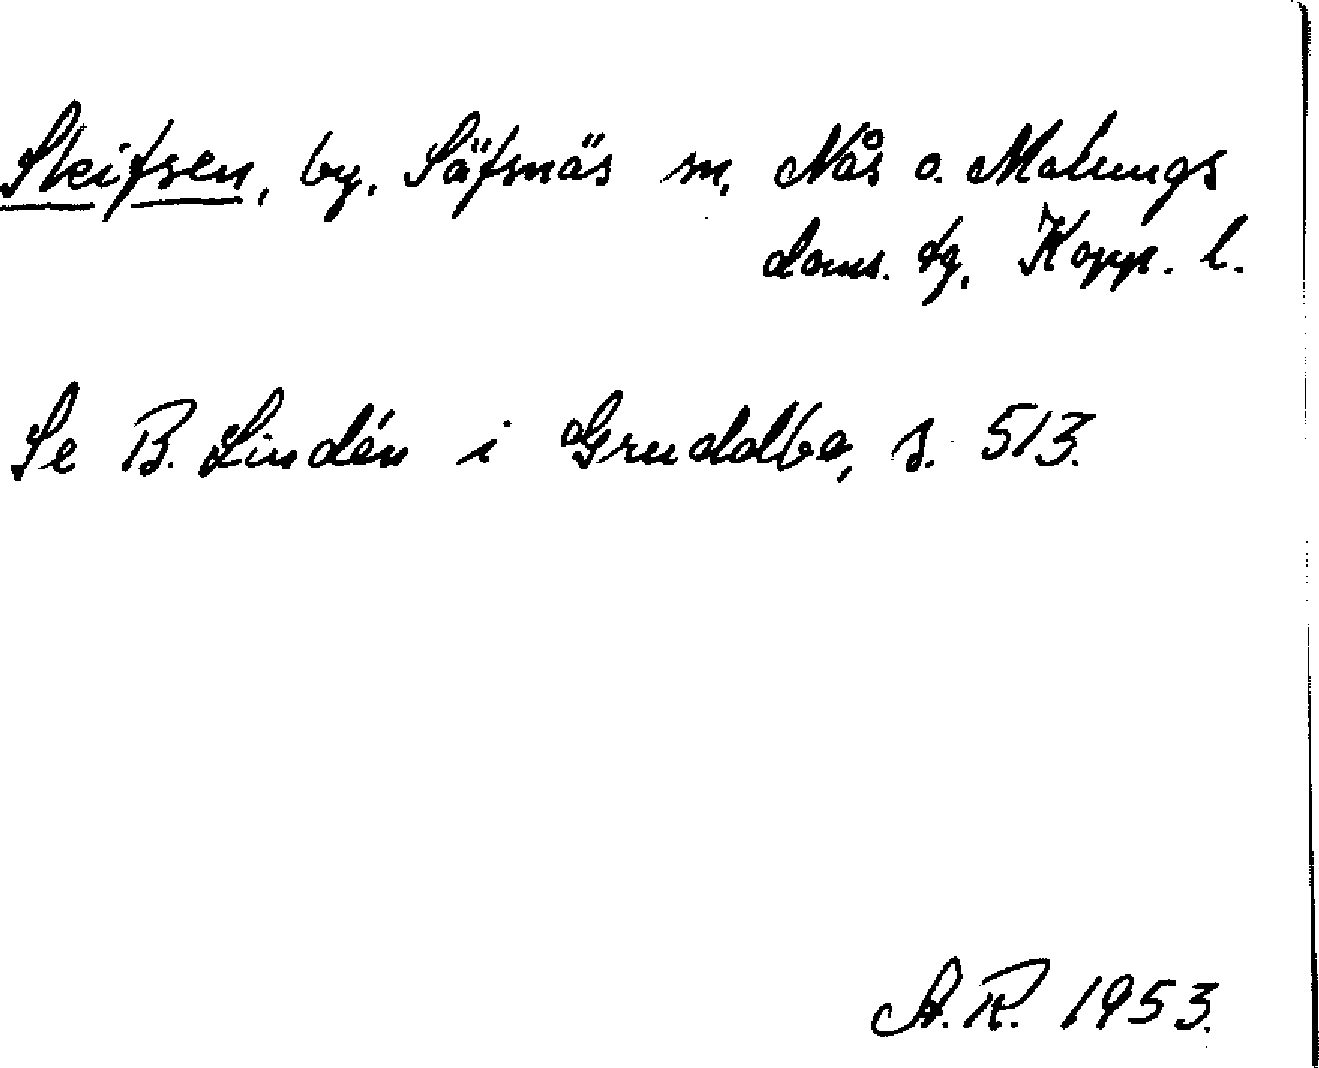 Skifsen, by, Säfsnäs sn, Nås o. Malungs
doms. dg, Kopp. l.
Se B. Lindén i Gruddbo, s. 513.
A.R. 1953.